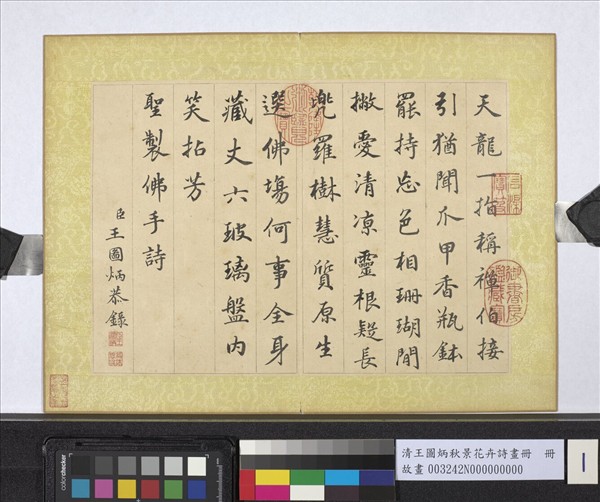 天龍一指稱禪伯接
引猶聞爪甲香瓶鉢
罷持忘色相珊瑚閒
撇愛清凉靈根疑長
兜羅樹慧質原生
選佛塲何事全身
藏丈六玻璃盤内
笑拈芳
聖製佛手詩
臣王圖炳恭錄
御書房鑑藏寶
colorchecker
清王圖炳秋景花卉詩畫冊 冊
故畫 003242N000000000
1